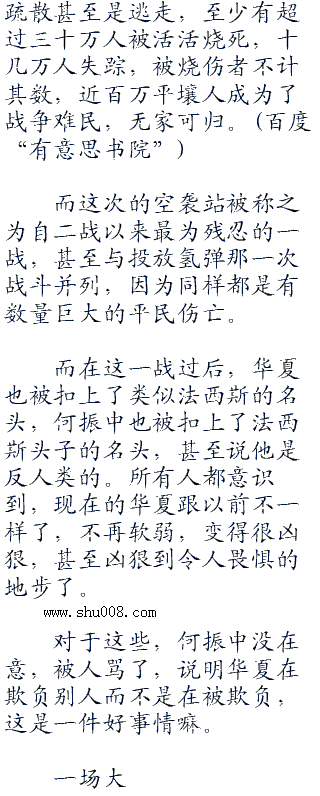 疏散甚至是逃走，至少有超
过三十万人被活活烧死，十
几万人失踪，被烧伤者不计
其数，近百万平壤人成为了
战争难民，无家可归。(百度
“有意思书院”)
而这次的空袭站被称之
为自二战以来最为残忍的一
战，甚至与投放氢弹那一次
战斗并列，因为同样都是有
数量巨大的平民伤亡。
而在这一战过后，华夏
也被扣上了类似法西斯的名
头，何振中也被扣上了法西
斯头子的名头，甚至说他是
反人类的。所有人都意识
到，现在的华夏跟以前不一
样了，不再软弱，变得很凶
狠，甚至凶狠到令人畏惧的
地步了。
www.shu008.com
对于这些，何振中没在
意，被人骂了，说明华夏在
欺负别人而不是在被欺负，
这是一件好事情嘛。
一场大